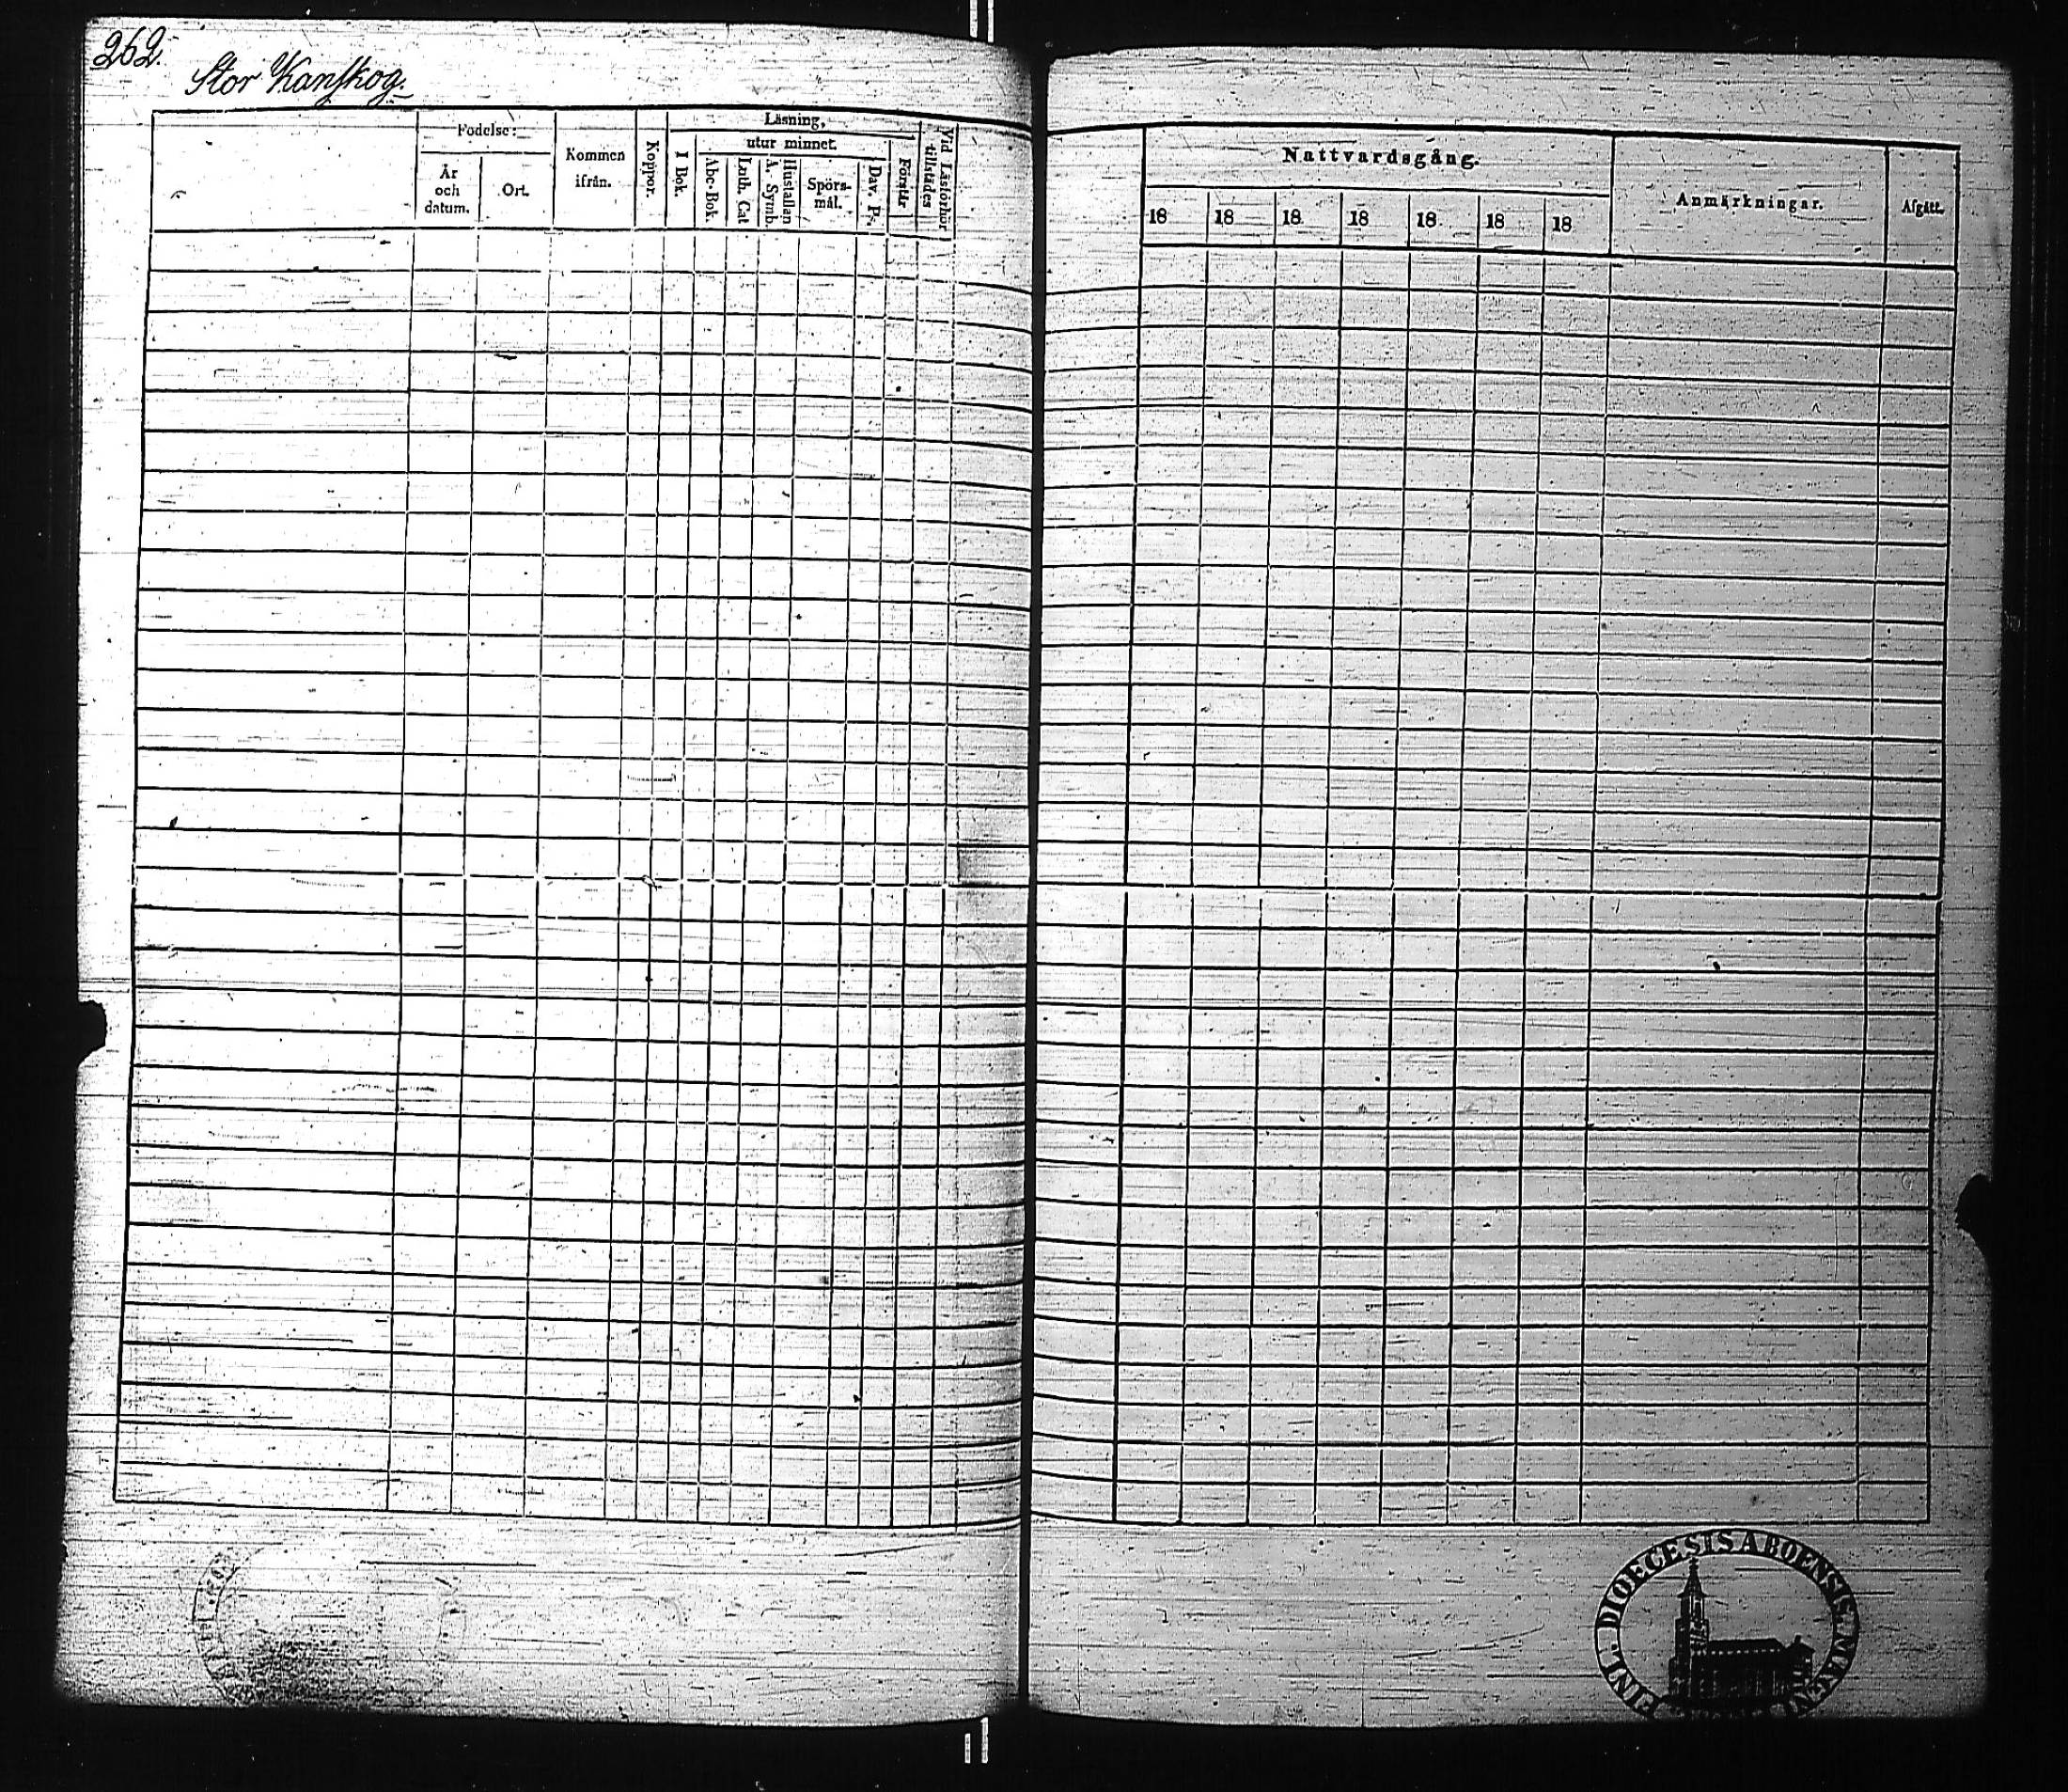 262.
Stor Kanskog.
Födelse:
År
och
datum.
Ort.
Kommen
ifrån.
Koppor.
Läsning,
utur minnet.
I Bok.
Abc-Bok.
Luth. Cat
A. Symb.
Hustaflan
Spörs-
mål.
Dav. Ps.
Förstår
Vid Läsförhör
tillstädes
Nattvardsgång.
18 18 18 18 18 18 18
Anmärkningar.
Afgått.
FINL. DIOECESIS ABOENSIS. MAGNI